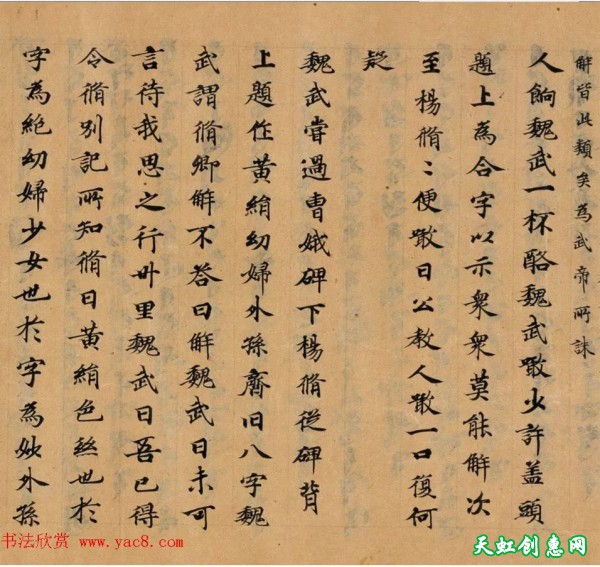 解皆此類矣為武帝所誅
人餉魏武一杯酪魏武噉少許盖頭
題上為合字以示衆衆莫能解次
至楊脩〻便噉曰公教人噉一口復何
疑
魏武甞過曹娥碑下楊脩從碑背
上題作黃絹幼婦外孫齏臼八字魏
武謂脩卿解不答曰解魏武曰未可
言待我思之行卅里魏武曰吾已得
令脩別記所知脩曰黃絹色絲也於
字為絶幼婦少女也於字為妙外孫
书法欣赏 www.yac8.com
天虹创惠网